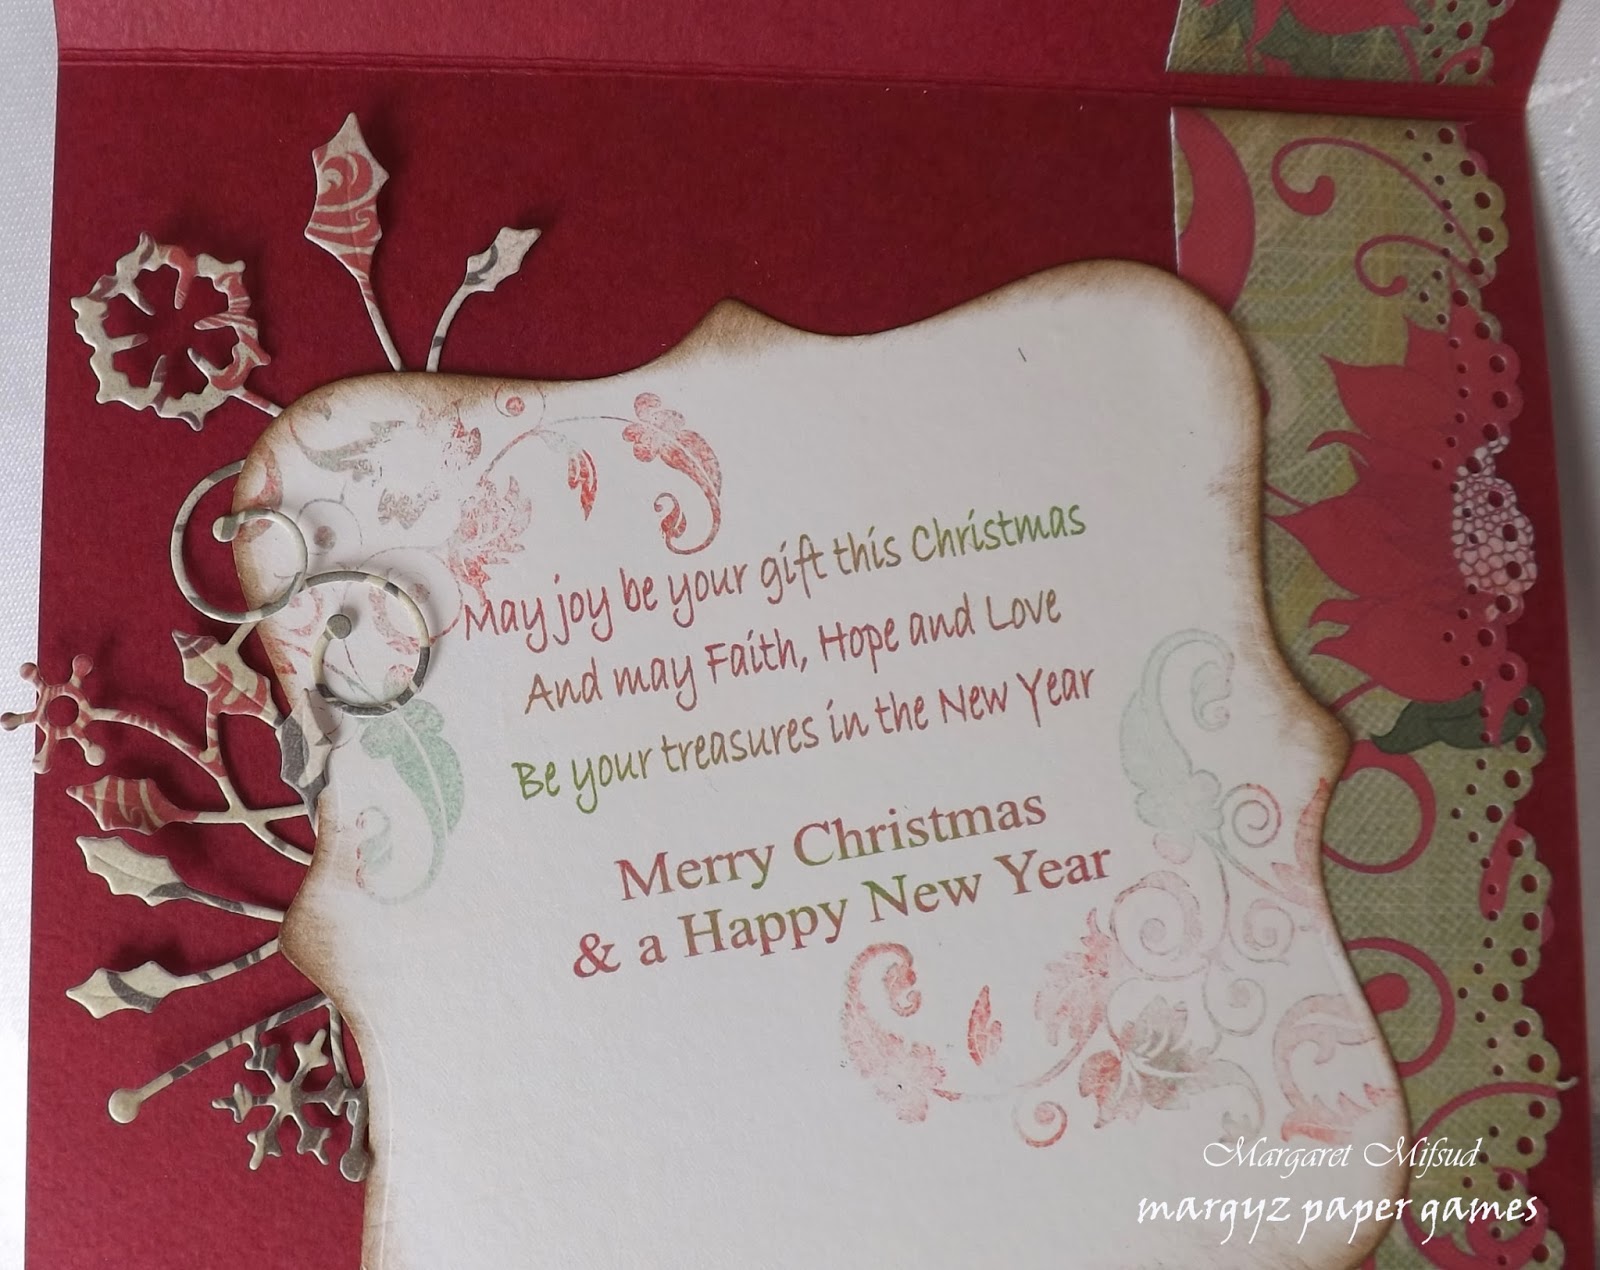 May joy be your gift this Christmas
And may Faith, Hope and Love
Be your treasures in the New Year
Merry Christmas
& a Happy New Year
Margaret Mifsud
margyz paper games